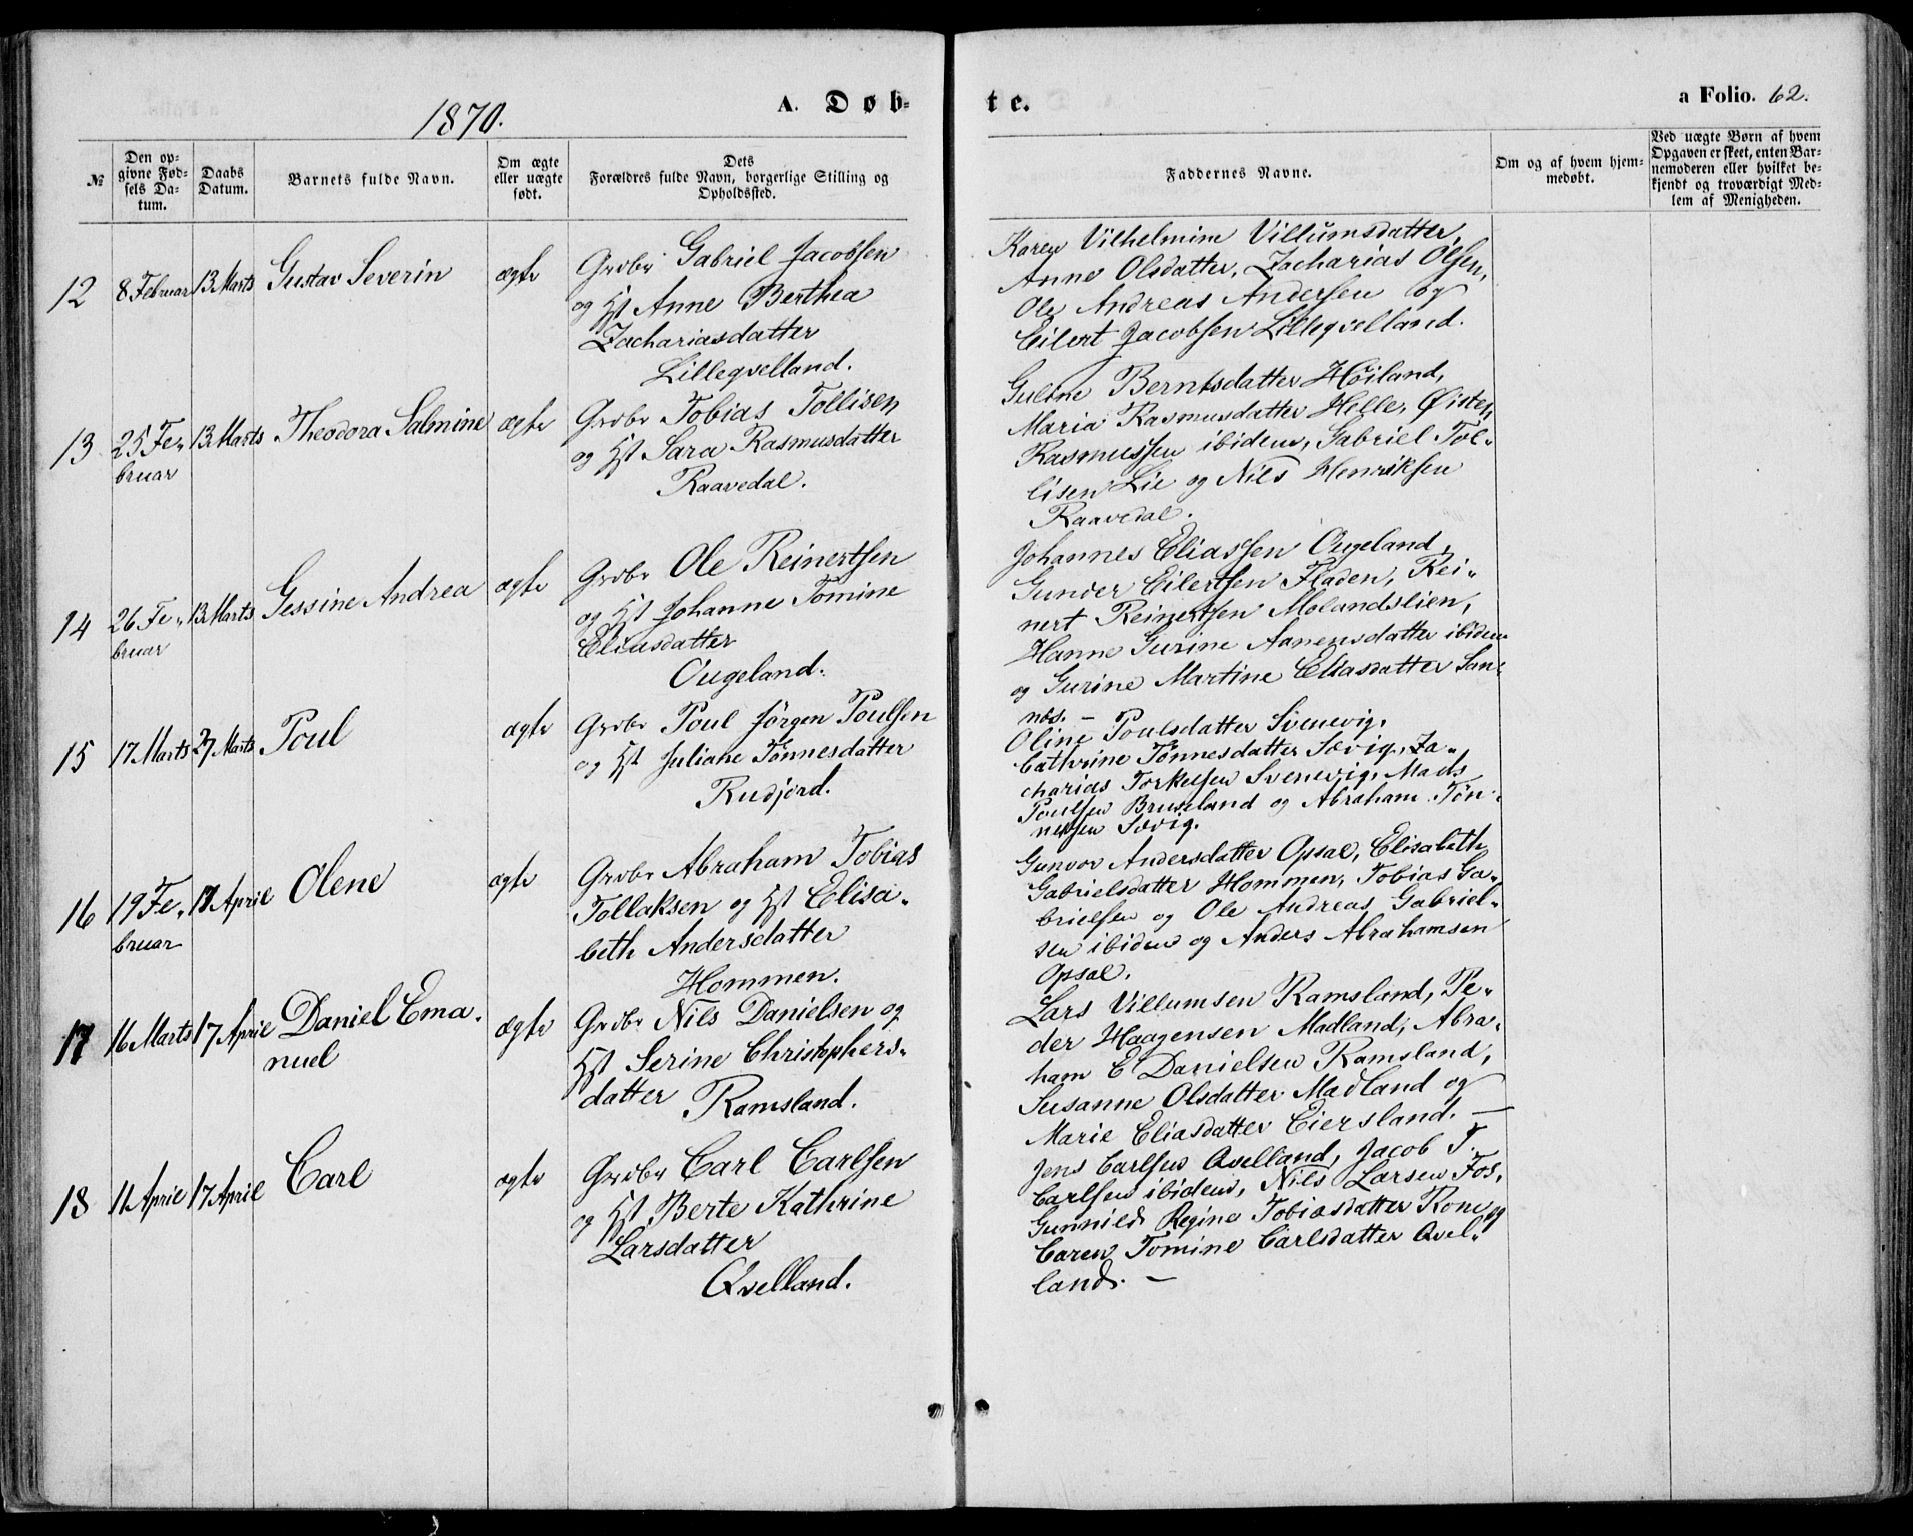 1870.
A. Døb-
te.
a Folio. 62.
№
Den op-
givne Fød-
sels Da-
tum.
Daabs
Datum.
Barnets fulde Navn.
Om ægte
eller uægte
født.
Dets
Forældres fulde Navn, borgerlige Stilling og
Opholdssted.
Faddernes Navne.
Om og af hvem hjem-
medøbt.
Ved uægte Børn af hvem
Opgaven er skeet, enten Bar-
nemoderen eller hvilket be-
kjendt og troværdigt Med-
lem af Menigheden.
12
8 Februar
13 Marts
Gustav Severin
ægte
Grdbr Gabriel Jacobsen
og Hst Anne Berthea
Zachariasdatter
Lilleqvelland.
Karen Vilhelmine Villumsdatter,
Anne Olsdatter, Zacharias Olsen,
Ole Andreas Andersen og
Eilert Jacobsen Lilleqvelland.
13
25 Fe-
bruar
13 Marts
Theodora Salmine
ægte
Grdbr Tobias Tollisen
og Hst Sara Rasmusdatter
Raavedal.
Guline Berntsdatter Høiland,
Maria Rasmusdatter Helle, Østen
Rasmussen ibidem, Gabriel Tol-
lisen Lie og Nils Henriksen
Raavedal.
14
26 Fe-
bruar
13 Marts
Gessine Andrea
ægte
Grdbr Ole Reinertsen
og Hst Johanne Tomine
Eliasdatter
Ougeland.
Johannes Eliassen Ougeland,
Gunder Eilertsen Fladen, Rei-
nert Reinertsen Molandslien,
Hanne Gurine Aanensdatter ibidem
og Gurine Martine Eliasdatter San-
næs. —
15
17 Marts
27 Marts
Poul
ægte
Grdbr Poul Jørgen Poulsen
og Hst Juliane Tønnesdatter
Rudjord.
Oline Poulsdatter Svenevig,
Cathrine Tønnesdatter Sævig, Za-
charias Torkelsen Svenevig, Mads
Poulsen Bruseland og Abraham Tøn-
nessen Sævig.
16
19 Fe-
bruar
17 April
Olene
ægte
Grdbr Abraham Tobias
Tollaksen og Hst Elisa-
beth Andersdatter
Hommen.
Gunvor Andersdatter Opsal, Elisabeth
Gabrielsdatter Hommen, Tobias Ga-
brielsen og Ole Andreas Gabriel-
sen ibidem og Anders Abrahamsen
Opsal.
17
16 Marts
17 April
Daniel Ema-
nuel
ægte
Grdbr Nils Danielsen og
Hst Serine Christophers-
datter Ramsland.
Lars Villumsen Ramsland, Pe-
der Haagensen Madland, Abra-
ham E Danielsen Ramsland,
Susanne Olsdatter Madland og
Marie Eliasdatter Eiersland. —
18
11 April
17 April
Carl
ægte
Grdbr Carl Carlsen
og Hst Berte Kathrine
Larsdatter
Qvelland.
Jens Carlsen Qvelland, Jacob T.
Carlsen ibidem, Nils Larsen Fos,
Gunnild Regine Tobiasdatter Rom og
Caren Tomine Carlsdatter Qvel-
land. —